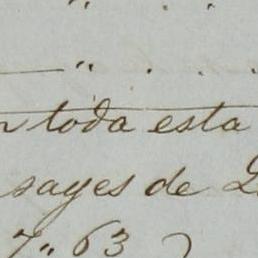 toda esta
sayes de
7" 63